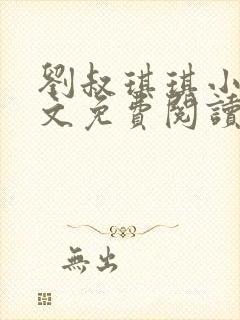 劉叔琪琪小
文免費閱讀
無出